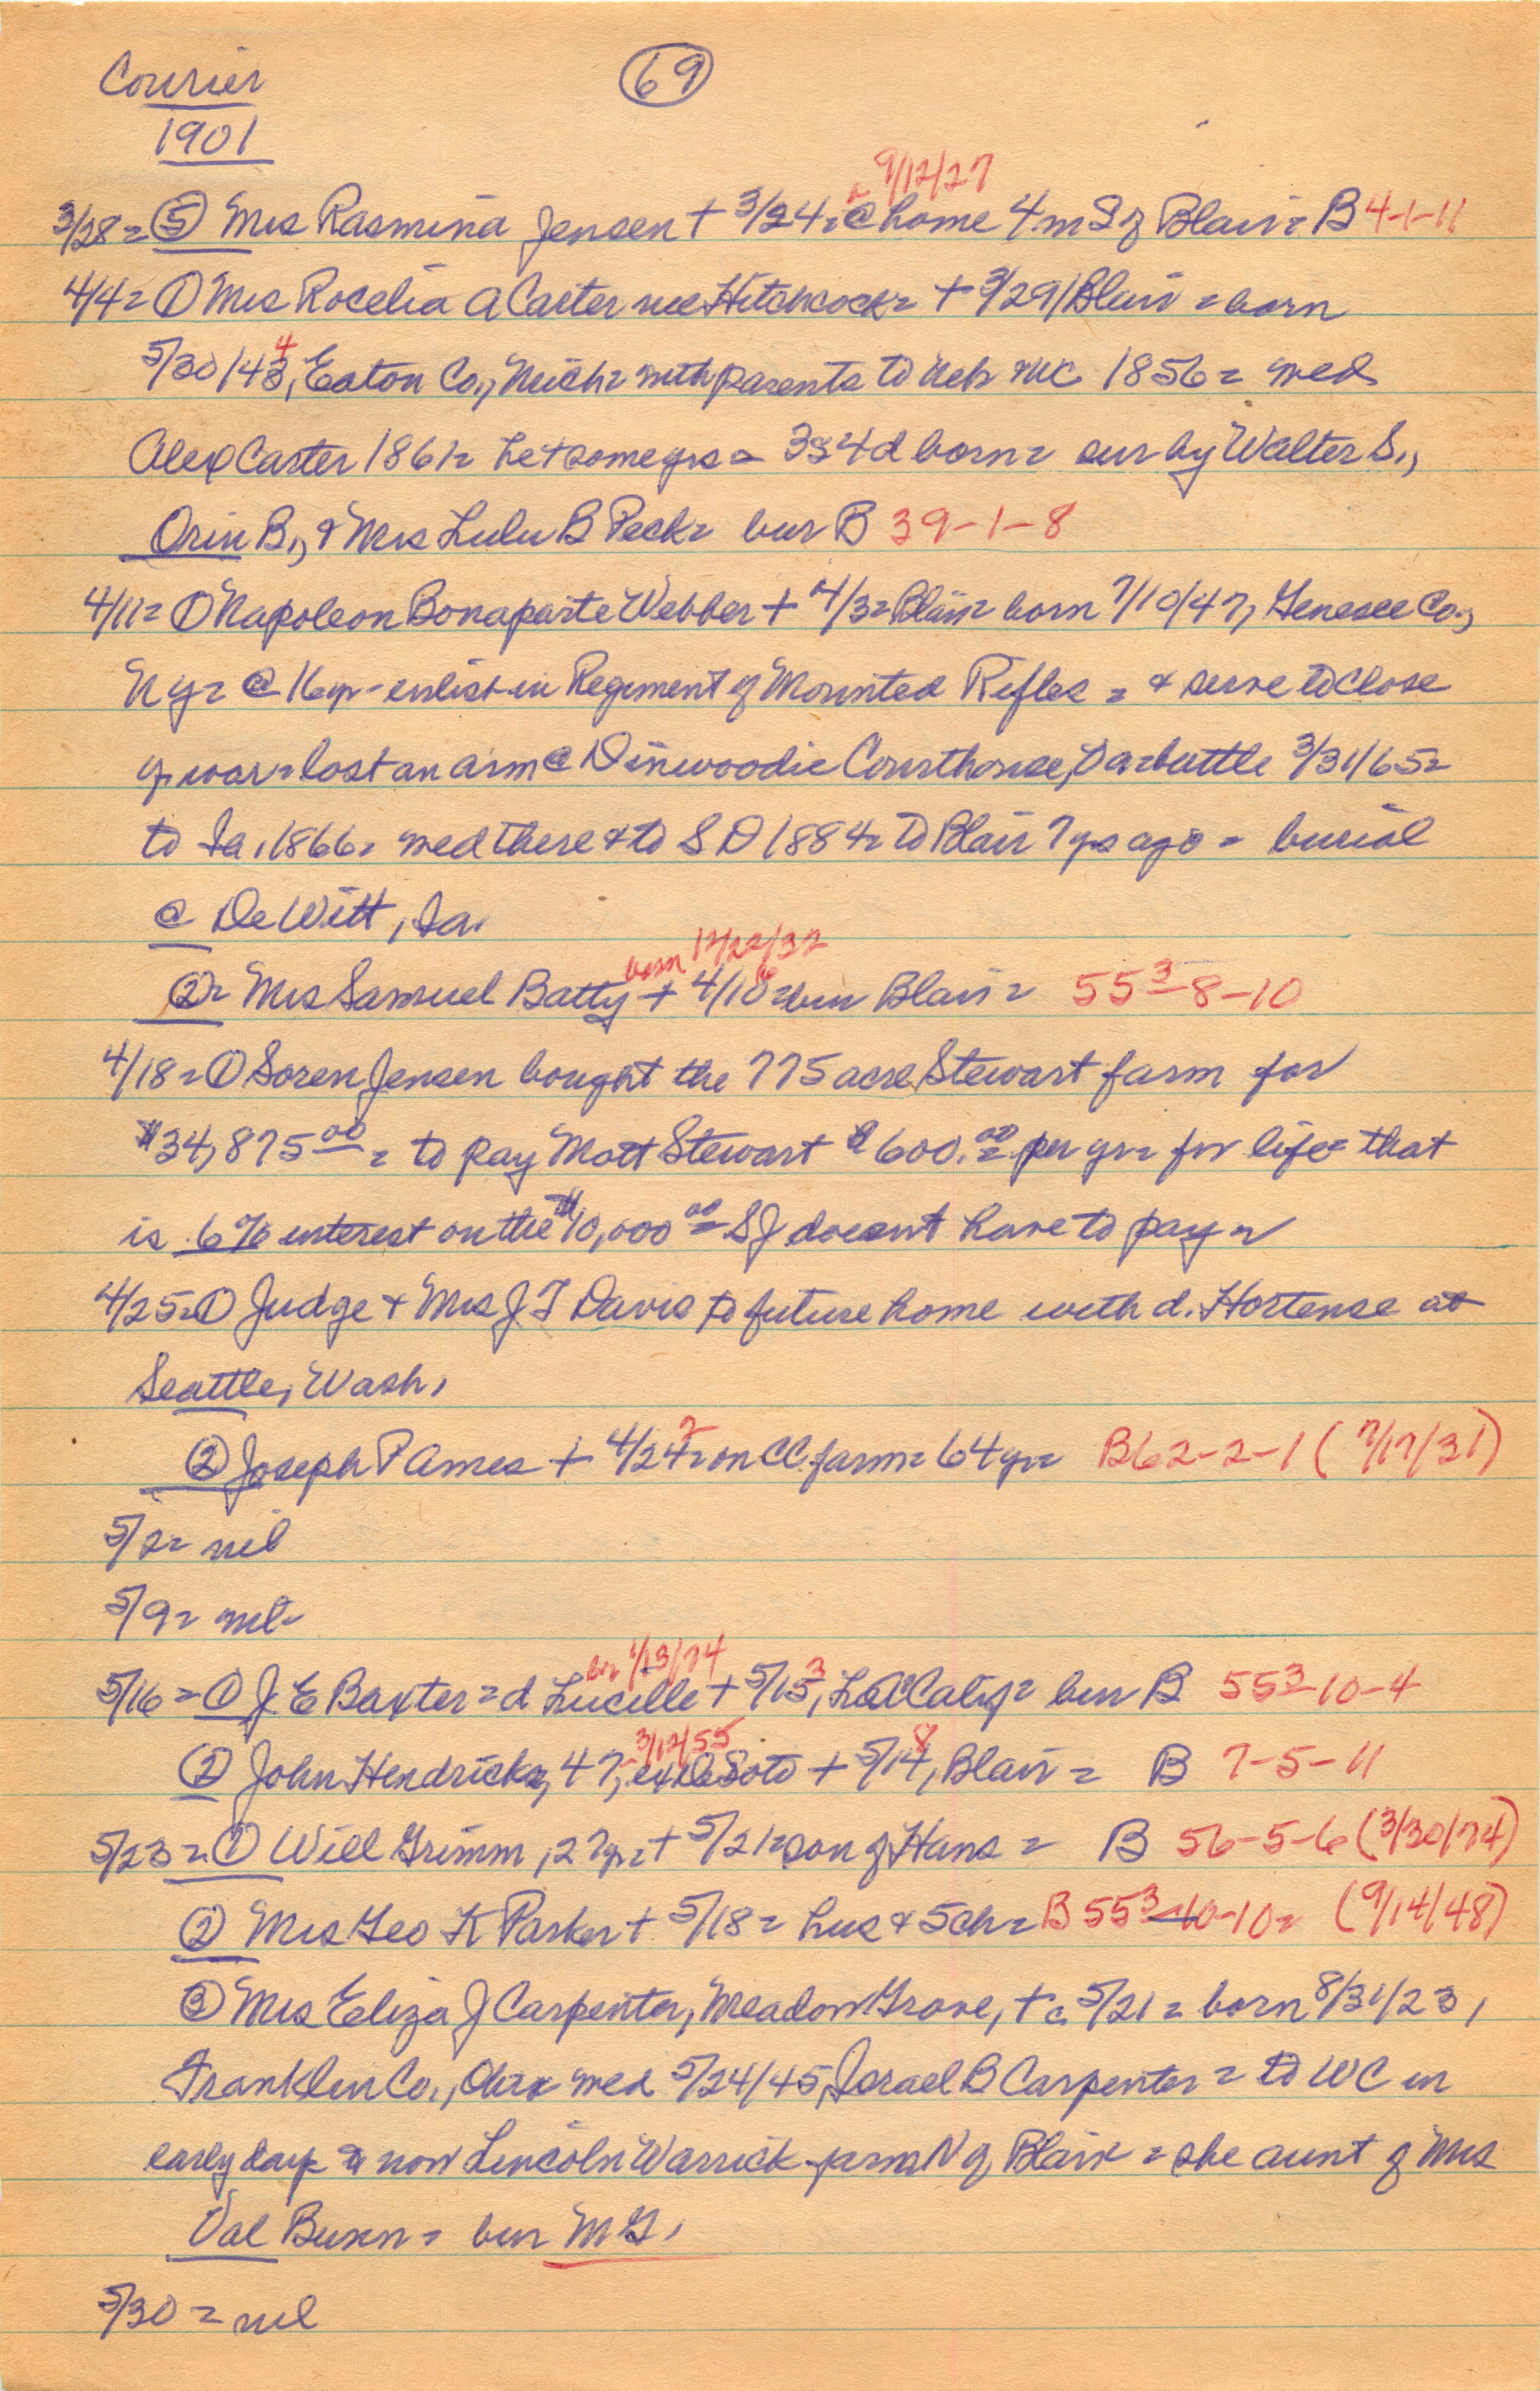 Courier
69
1901
9/12/27
3/28 = ⑤ Mrs Rasmina Jensen + 3/24 = @ home 4 m S of Blair = B 4-1-11
4/4 = ① Mrs Rocelia A Carter nee Hitchcock = + 3/29/Blair = born
4
5/30/43, Eaton Co., Mich = with parents to Neb WC 1856 = med
Alex Carter 1861 = he + some yrs = 3s 4d born = sur by Walter S.,
Orin B., & Mrs Lulu B Peck = bur B 39-1-8
4/11 = ① Napoleon Bonaparte Webber + 4/3 = Blair = born 7/10/47, Genesee Co.,
N Y = @ 16 yr - enlist in Regiment of Mounted Rifles = & serve to close
of war = lost an arm @ Dinwoodie Courthouse, Va = battle 3/31/65 =
to Ia. 1866 = med there & to S D 1884 = to Blair 7 yrs ago = burial
@ DeWitt, Ia.
born 12/22/32
② = Mrs Samuel Batty + 4/10 = bur Blair = 55³-8-10
4/18 = ① Soren Jensen bought the 775 acre Stewart farm for
$34,875⁰⁰ = to pay Mott Stewart $600.⁰⁰ per yr = for life = that
is 6% interest on the $10,000⁰⁰ = S J doesnt have to pay =
4/25 = ① Judge & Mrs J T Davis to future home with d. Hortense at
Seattle, Wash.
2
② Joseph P Ames + 4/24 = on CC farm = 64 yr = B 62-2-1 (7/17/31)
5/2 = nil
5/9 = nil
bor 1/13/74 3
5/16 = ① J. E Baxter = d Lucille + 5/15, LA Calif = bur B 55³-10-4
3/12/55 8
② John Hendricks, 47, ex DeSoto + 5/14, Blair = B 7-5-11
5/23 = ① Will Grimm, 27 yr = + 5/21 = son of Hans = B 56-5-6 (3/30/74)
② Mrs Geo K Parker + 5/18 = hus & 5 ch = B 55³-10-10 = (9/14/48)
③ Mrs Eliza J Carpenter, Meadow Grove, + c. 5/21 = born 8/31/23,
Franklin Co., O = med 5/24/45, Israel B Carpenter = to WC in
early days = now Lincoln Warrick farm N of Blair = she aunt of Mrs
Val Buxn = bur M G.
5/30 = nil